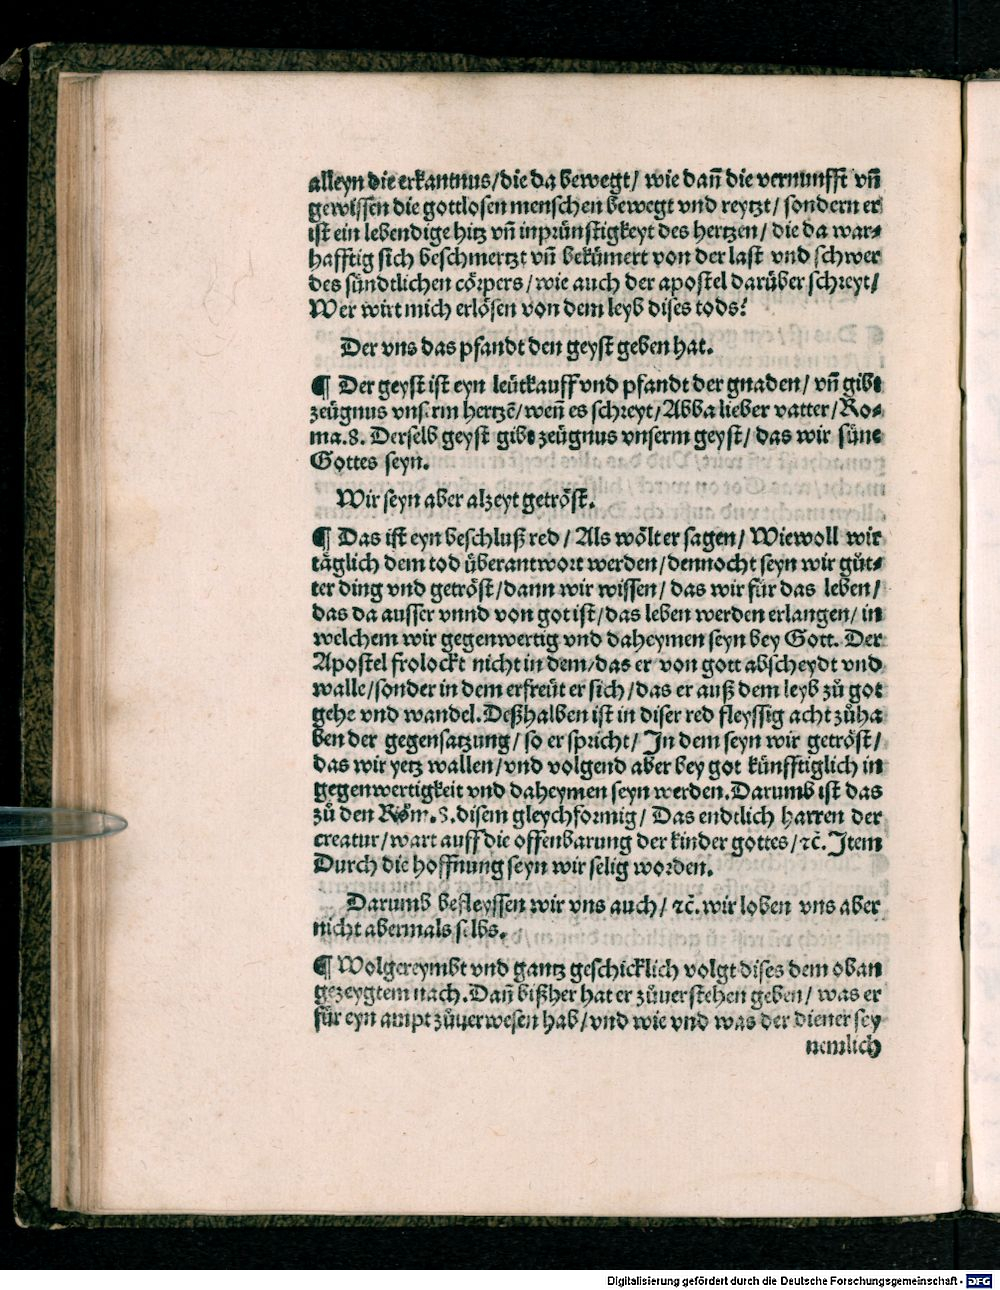 alleyn die erkantnus/die da bewegt/ wie dañ die vernunfft vñ
gewissen die gottlosen menschen bewegt vnd reytzt/ sondern er
ist ein lebendige hitz vñ inprünstigkeyt des hertzen/ die da war⸗
hafftig sich beschmertzt vñ bekümert von der last vnd schwer
des sündtlichen cörpers/ wie auch der apostel darüber schreyt/
Wer wirt mich erlösen von dem leyb dises tods?
Der vns das pfandt den geyst geben hat.
¶ Der geyst ist eyn leütkauff vnd pfandt der gnaden/ vñ gibt
zeügnus vnserm hertzē/ weñ es schreyt/ Abba lieber vatter/ Ro⸗
ma.8. Derselb geyst gibt zeügnus vnserm geyst/ das wir süne
Gottes seyn.
Wir seyn aber alzeyt getröst.
¶ Das ist eyn beschluß red/ Als wölt er sagen/ Wiewoll wir
täglich dem tod überantwort werden/dennocht seyn wir gůt⸗
ter ding vnd getröst/dann wir wissen/ das wir für das leben/
das da ausser vnnd von got ist/das leben werden erlangen/ in
welchem wir gegenwertig vnd daheymen seyn bey Gott. Der
Apostel frolockt nicht in dem/das er von gott abscheydt vnd
walle/sonder in dem erfreüt er sich/das er auß dem leyb zů got
gehe vnd wandel. Deßhalben ist in diser red fleyssig acht zůha
ben der gegensatzung/ so er spricht/ In dem seyn wir getröst/
das wir yetz wallen/vnd volgend aber bey got künfftiglich in
gegenwertigkeit vnd daheymen seyn werden. Darumb ist das
zů den Röm.8. disem gleychformig/ Das endtlich harren der
creatur/wart auff die offenbarung der kinder gottes/ ꝛc̄. Item
Durch die hoffnung seyn wir selig worden.
Darumb befleyssen wir vns auch/ ꝛc̄. wir loben vns aber
nicht abermals selbs.
¶ Wolgereymbt vnd gantz geschicklich volgt dises dem oban
gezeygtem nach. Dañ bißher hat er zůuerstehen geben/ was er
für eyn ampt zůuerwesen hab/vnd wie vnd was der diener sey
nemlich
Digitalisierung gefördert durch die Deutsche Forschungsgemeinschaft - DFG